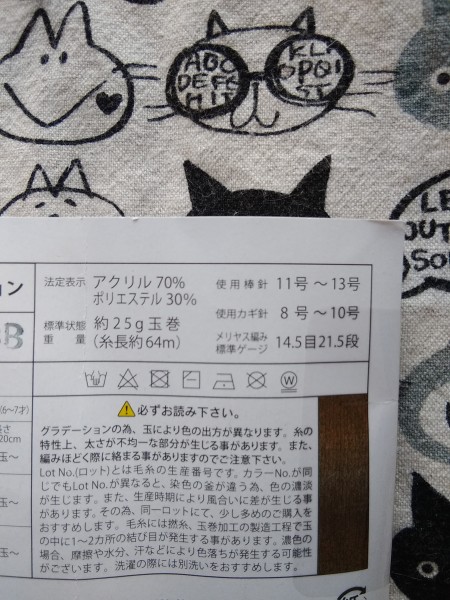 ABC
DEFG
HIJ
KL
OPQ
ST
LE
OUT
SO
ョン
法定表示 アクリル 70%
ポリエステル 30%
使用棒針 11号～13号
使用カギ針 8号～10号
標準状態 約25g玉巻
重量 (糸長約64m)
メリヤス編み 14.5目21.5段
標準ゲージ
B
(6~7才)
長さ
20cm
玉～
玉～
玉～
必ずお読み下さい。
グラデーションの為、玉により色の出方が異なります。糸の
特性上、太さが不均一な部分が生じる事があります。また、
編みほどく際に絡まる事がありますのでご注意下さい。
Lot No.(ロット)とは毛糸の生産番号です。カラーNo.が同
じでもLot No.が異なると、染色の釜が違う為、色の濃淡
が生じます。また、生産時期により風合いに差が生じる事
があります。その為、同一ロットにて、少し多めのご購入を
おすすめします。毛糸には撚糸、玉巻加工の製造工程で玉
の中に1～2カ所の結び目が発生する事があります。濃色の
場合、摩擦や水分、汗などにより色落ちが発生する可能性
がございます。洗濯の際には別洗いをおすすめします。